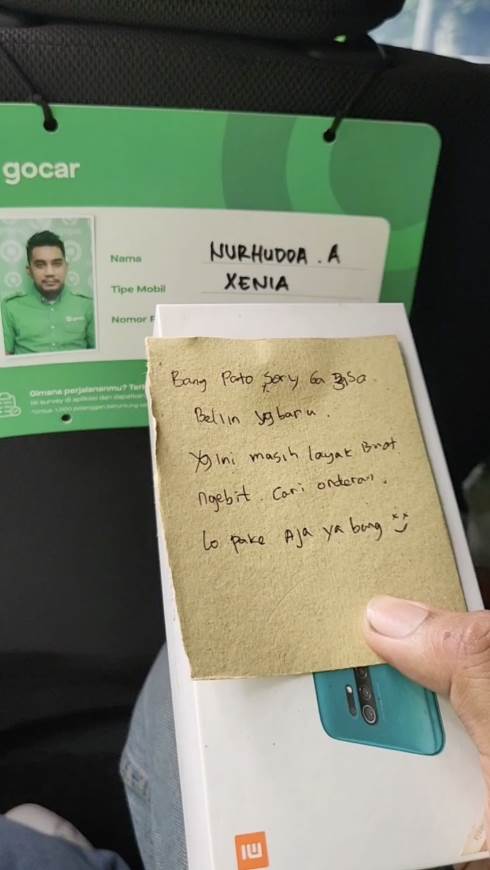 gocar
Nama NURHUDDA . A
Tipe Mobil XENIA
Nomor
Gimana perjalananmu?
Isi survey di aplikasi dan dapatkan
Bang Pato Sory Ga Bisa
Beliin yg baru .
yg ini masih layak Buat
ngebit . Cari orderan .
Lo pake Aja ya bang